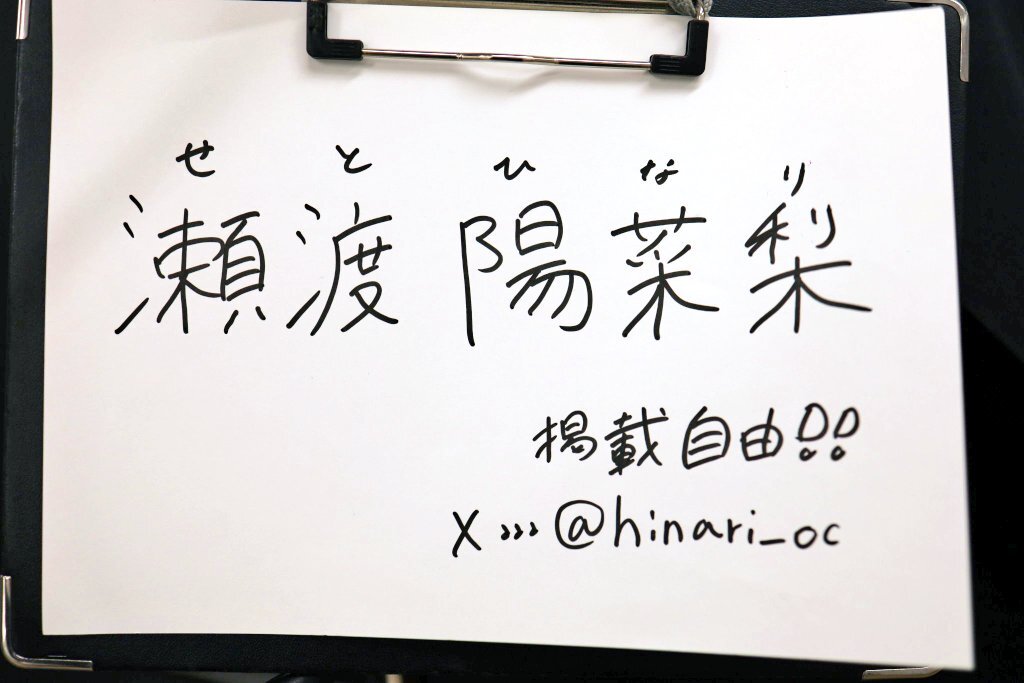 せ と ひ な り
瀬渡 陽菜梨
掲載自由!!
X >>> @hinari_oc